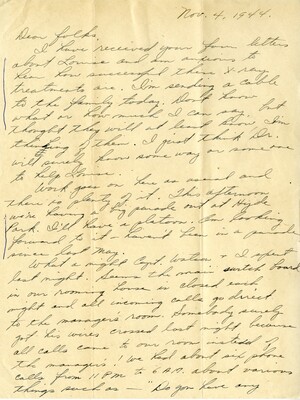 Nov. 4, 1944.
Dear folks,
I have received your four letters
about Louise and am anxious to
hear how successful these x-ray
treatments are. I'm sending a cable
to the family today. Don't know
what or how much I can say, but
thought they will at least know I'm
thinking of them. I just think Dr.
will surely know some way or some one
to help Louise.
Work goes on here as usual and
there is plenty of it. This afternoon
we're having a big parade out at Hyde
Park. I'll have a platoon. Am looking
forward to it, haven't been in a parade
since last May.
What a night Capt. Watson & I spent
last night. Seems the main switch board
in our rooming house is closed each
night and all incoming calls go direct
to the manager's room. Somebody surely
got his wires crossed last night because
all calls came to our room instead of
the manager's! We had about six phone
calls from 11 PM to 6 AM about various
things such as — "Do you have any